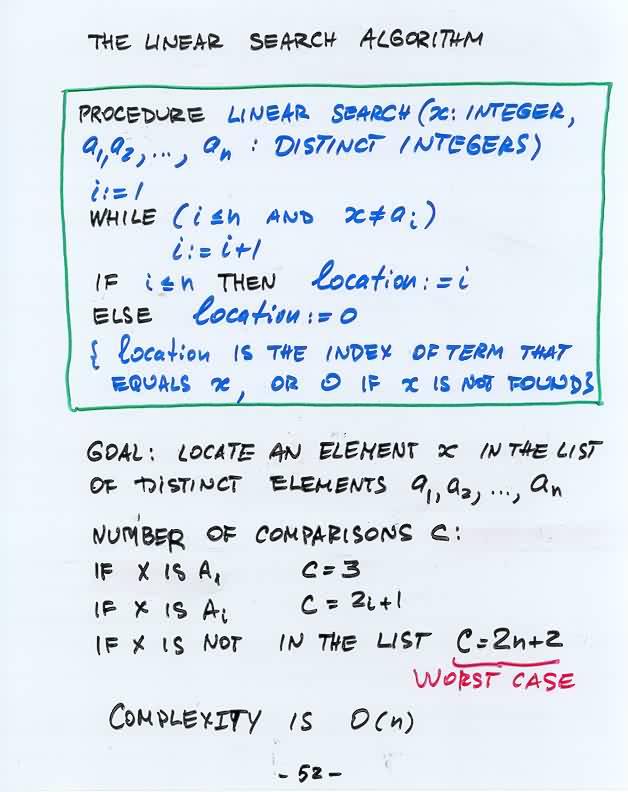 THE LINEAR SEARCH ALGORITHM
PROCEDURE LINEAR SEARCH (x: INTEGER,
a₁,a₂,..., aₙ : DISTINCT INTEGERS)
i:=1
WHILE (i≤n AND x≠aᵢ)
i:= i+1
IF i≤n THEN location:=i
ELSE location:=0
{ location IS THE INDEX OF TERM THAT
EQUALS x, OR 0 IF x IS NOT FOUND}
GOAL: LOCATE AN ELEMENT x IN THE LIST
OF DISTINCT ELEMENTS a₁,a₂,..., aₙ
NUMBER OF COMPARISONS C:
IF X IS A₁ C=3
IF X IS Aᵢ C=2i+1
IF X IS NOT IN THE LIST C=2n+2
WORST CASE
COMPLEXITY IS O(n)
-52-